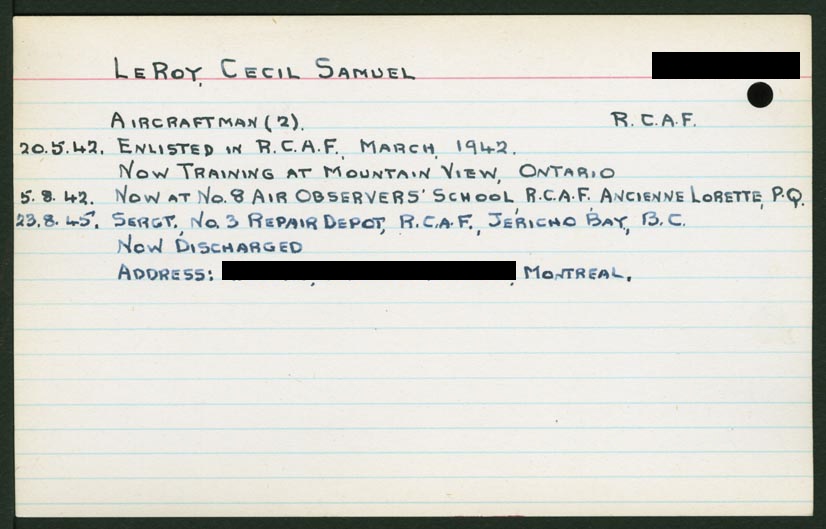 LeRoy, Cecil Samuel
Aircraftman (2). R.C.A.F.
20.5.42. Enlisted in R.C.A.F., March, 1942.
Now Training at Mountain View, Ontario
5.8.42. Now at No. 8 Air Observers' School, R.C.A.F. Ancienne Lorette, P.Q.
23.8.45. Sergt., No. 3 Repair Depot, R.C.A.F., Jericho Bay, B.C.
Now Discharged
Address: , Montreal.